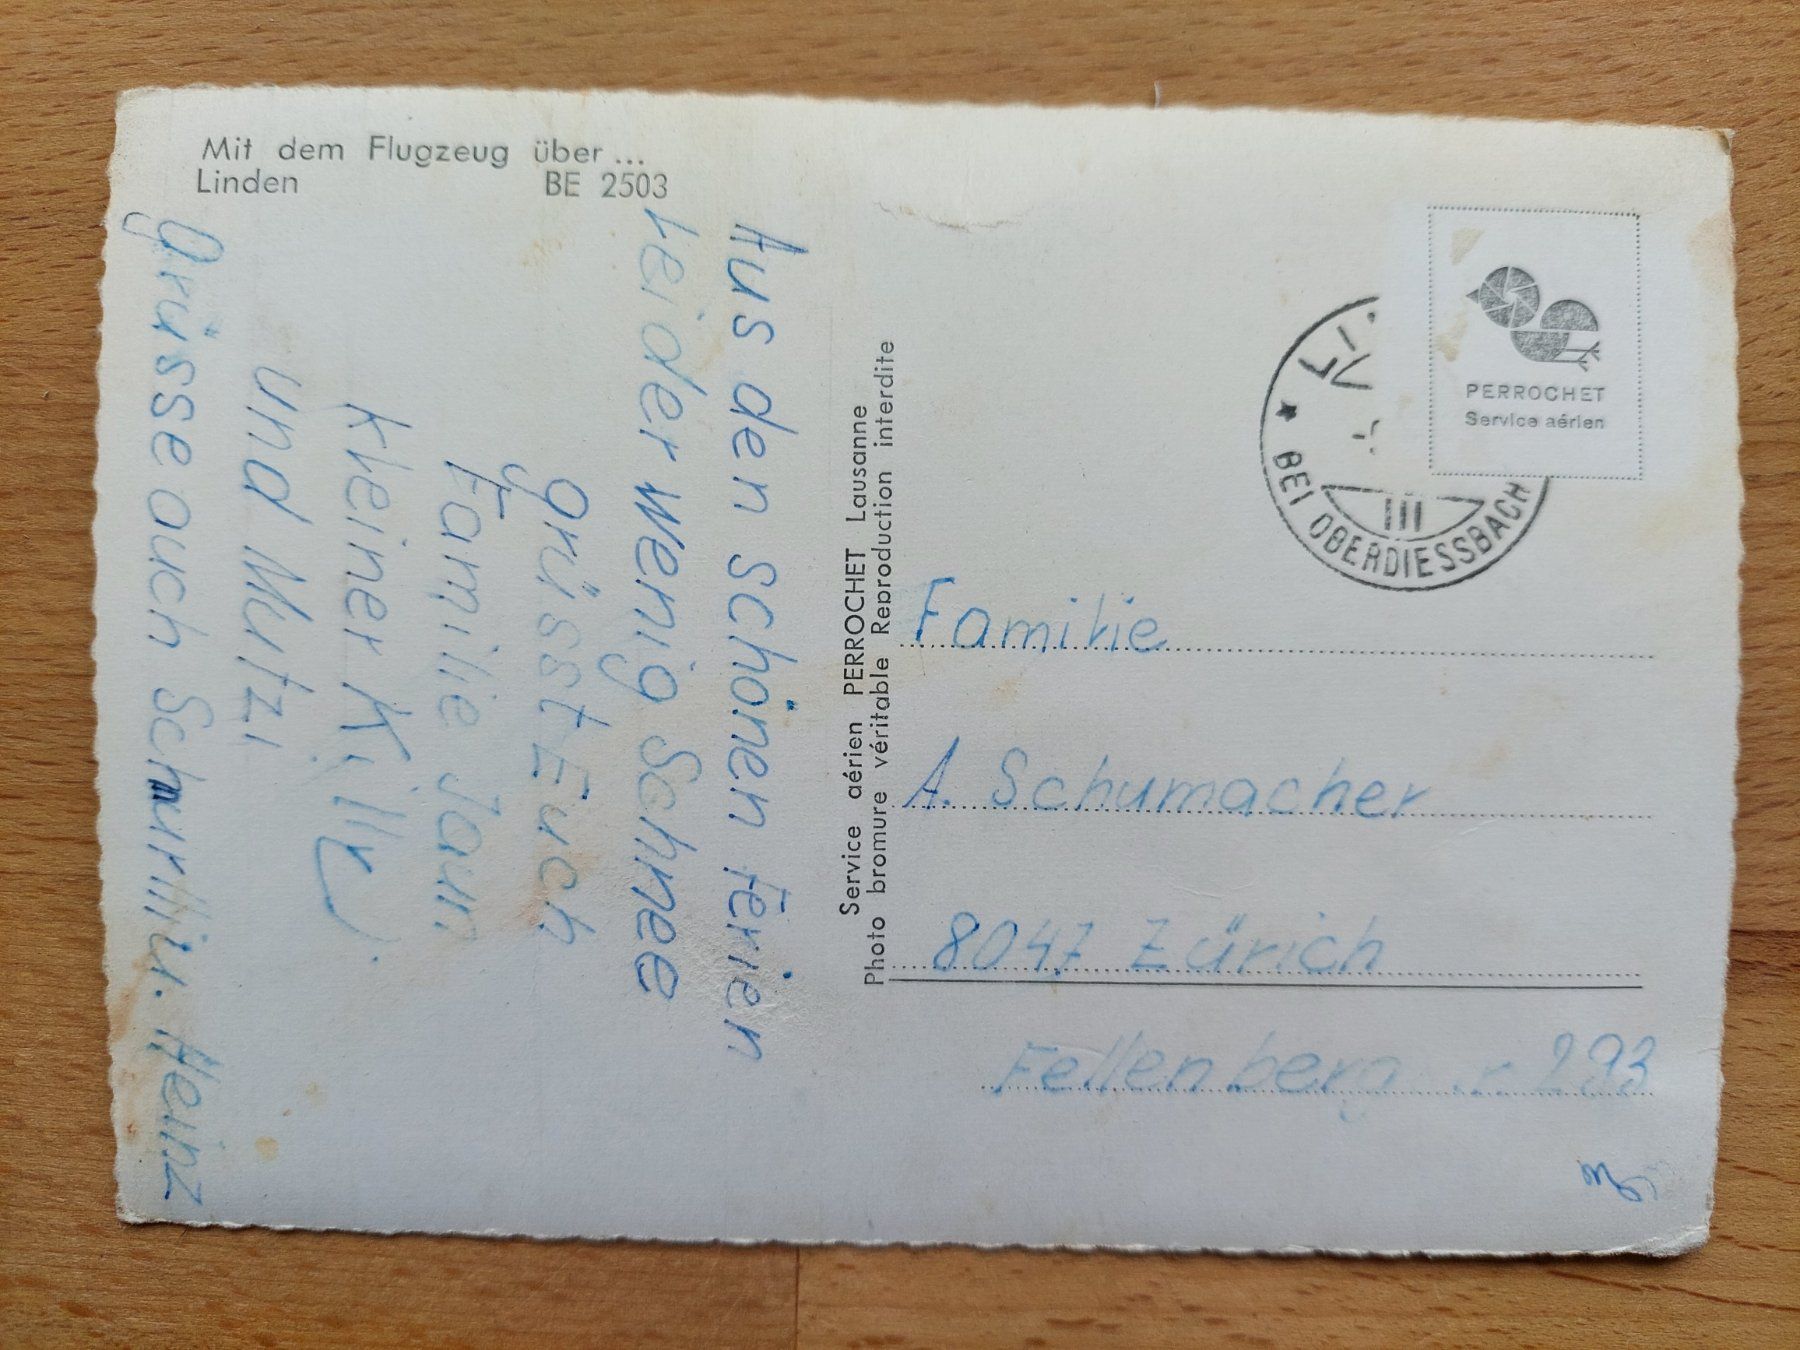 Mit dem Flugzeug über...
Linden BE 2503
Aus den schönen Ferien
Leider wenig Schnee
grüsst Euch
Familie Jaun
kleiner K
und Mutzi
grüsse auch Heinz
Service aérien PERROCHET Lausanne
Photo bromure véritable Reproduction interdite
PERROCHET
Service aérien
BEI OBERDIESSBACH
III
Familie
A. Schumacher
8047 Zürich
293